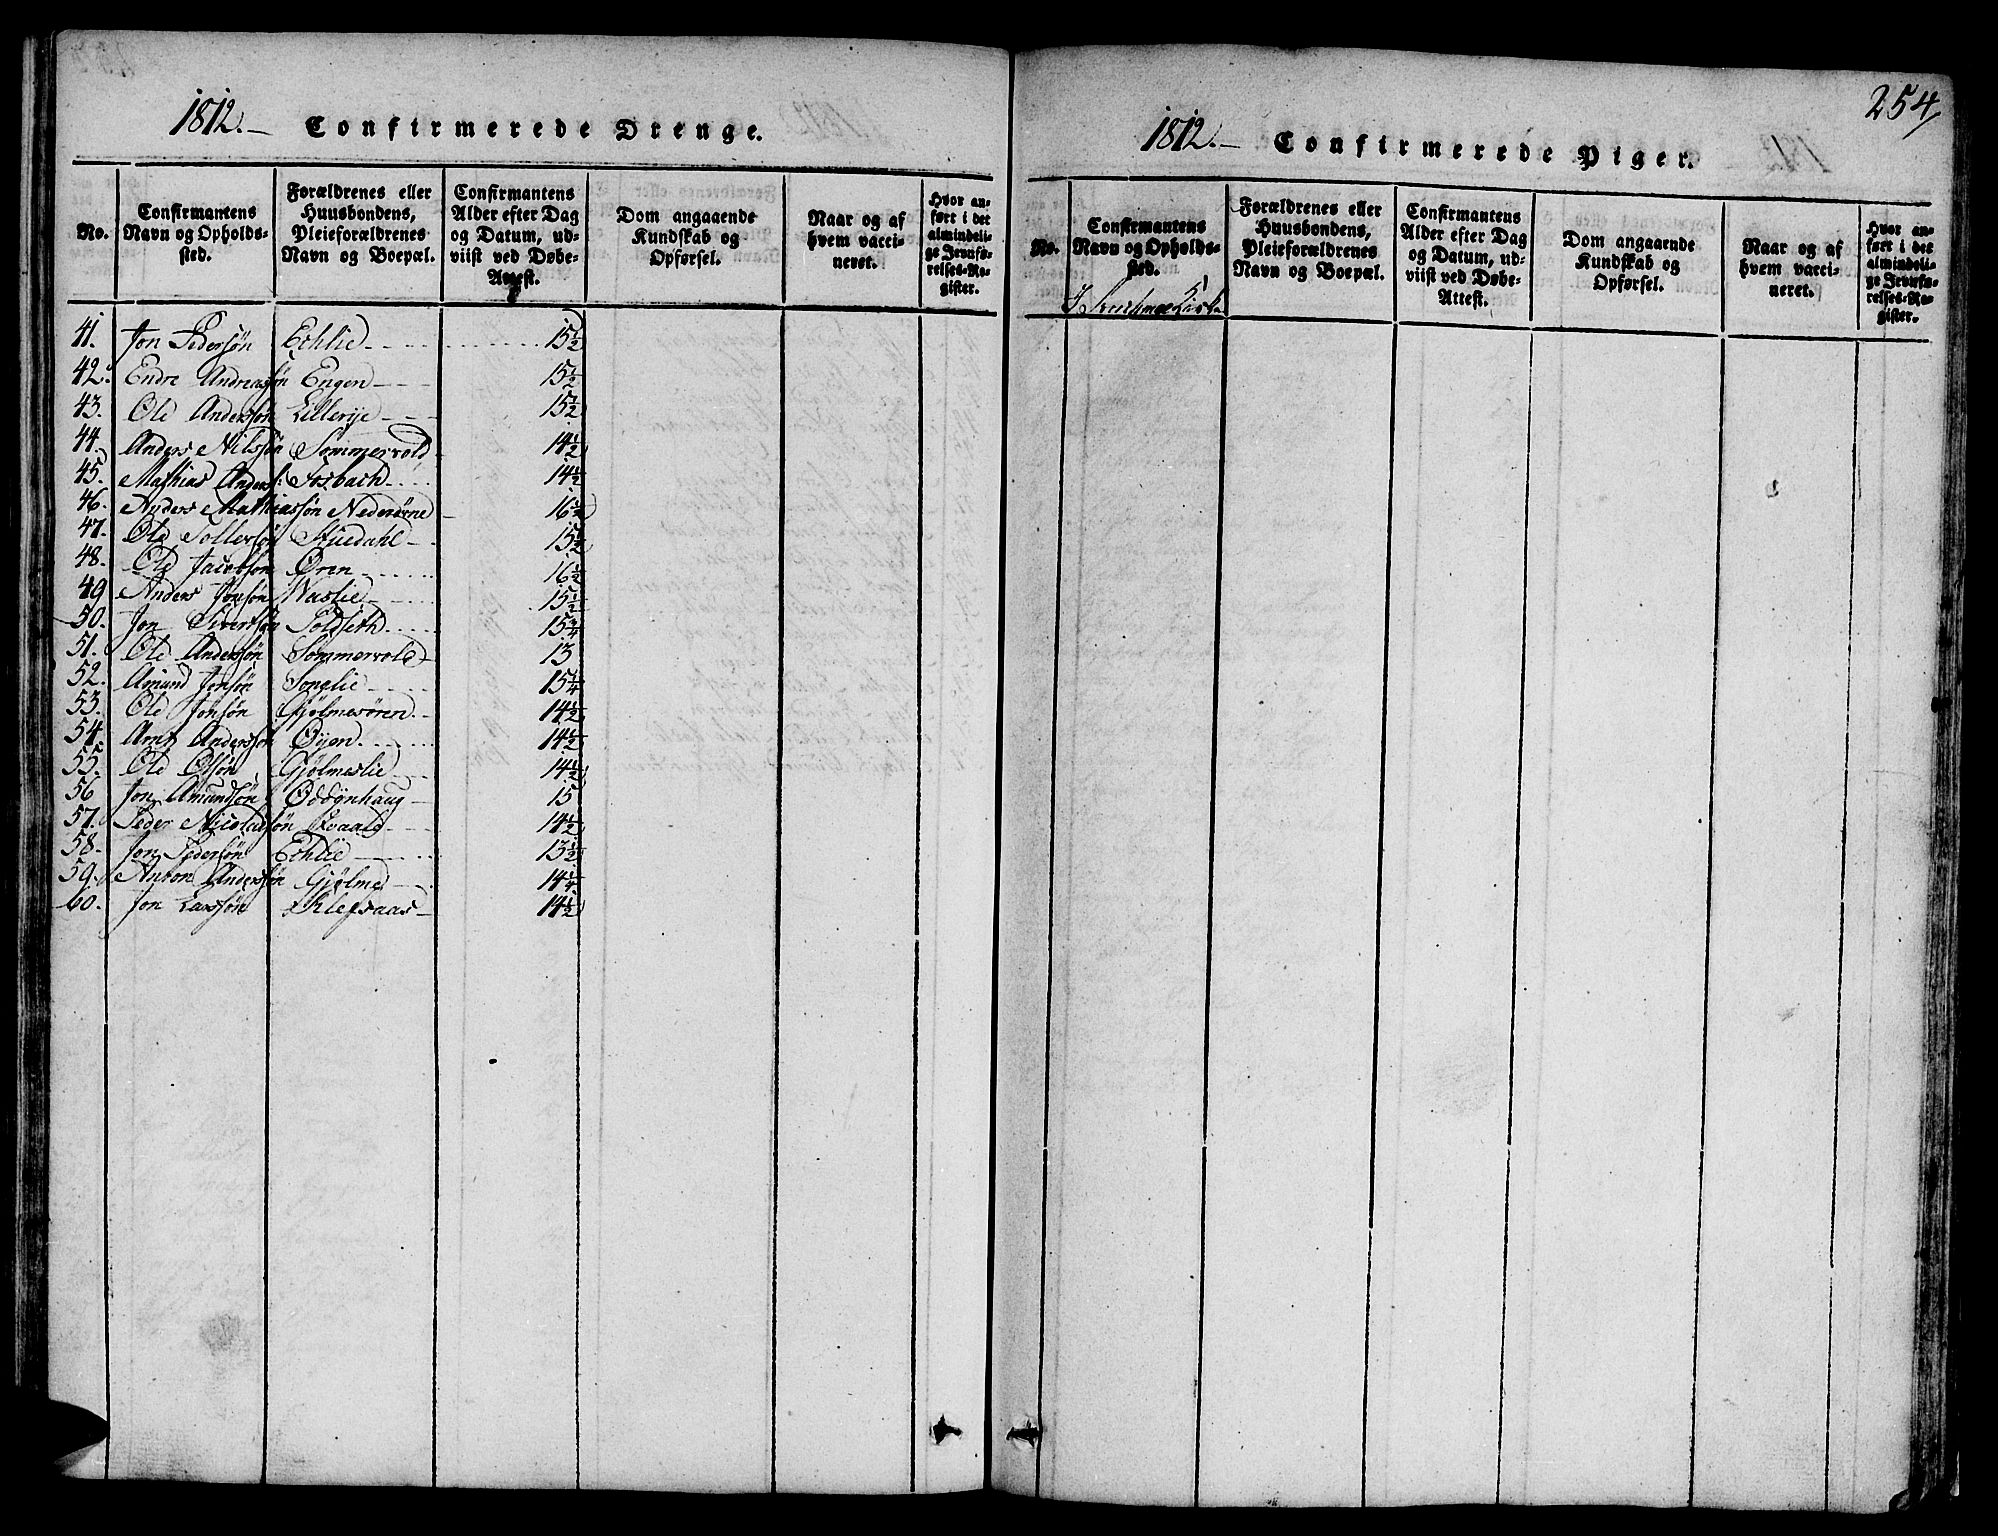 1812.–
Confirmerede Drenge.
No.
Confirmantens Navn og Opholds-sted.
Forældrenes eller Huusbondens, Pleieforældrenes Navn og Boepæl.
Confirmantens Alder efter Dag og Datum, ud-viist ved Døbe-Attest.
Dom angaaende Kundskab og Opførsel.
Naar og af hvem vacci-neret.
Hvor an-ført i det almindeli-ge Jevnfø-relses-Re-gister.
41. Jon Pedersøn Echlie 15½
42. Endre Andreasøn Engen 15½
43. Ole Andersøn Lillerije 15½
44. Anders Nilssøn Sommervold 14½
45. Mathias Anders: Fosbach 14½
46. Anders Mathiassøn Nederørne 16½
47. Ole Tollersøn Stuedahl 15½
48. Ole Jacobsøn Øren 16½
49 Anders Jonsøn Waslie 15½
50. Jon Sivertsøn Soldseth 15¾
51. Ole Andersøn Sommervold 13
52. Amund Jonsøn Songlie 15¼
53. Ole Jonsøn Gjølmesøren 14½
54. Arnt Andersøn Øyen 14½
55. Ole Olsøn Gjølmeslie 14½
56 Jon Amundsøn Oddønhaug 15
57. Peder Nicolaisøn Qvaale 14½
58. Jon Pedersøn Echlie 13½
59. Anton Andersøn Gjølme 14¼
60. Jon Larsøn Klefsaas 14½
254/
1812.–
Confirmerede Piger.
No.
Confirmantens Navn og Opholds-sted.
Forældrenes eller Huusbondens, Pleieforældrenes Navn og Boepæl.
Confirmantens Alder efter Dag og Datum, ud-viist ved Døbe-Attest.
Dom angaaende Kundskab og Opførsel.
Naar og af hvem vacci-neret.
Hvor an-ført i det almindeli-ge Jevnfø-relses-Re-gister.